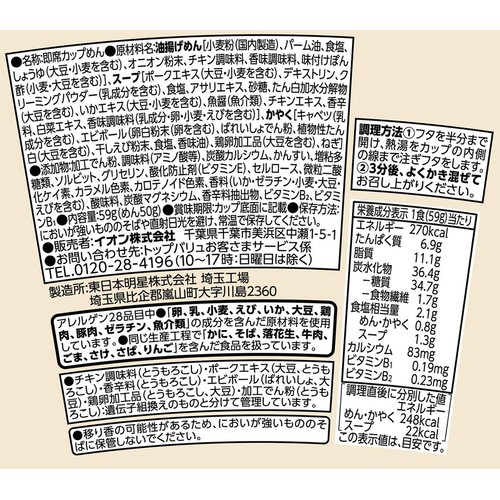 ●名称:即席カップめん●原材料名:油揚げめん[小麦粉(国内製造)、パーム油、食塩、
しょうゆ(大豆・小麦を含む)、オニオン粉末、チキン調味料、香味調味料、味付けぽん
酢(小麦・大豆を含む)]、スープ[ポークエキス(大豆・小麦を含む)、デキストリン、ク
リーミングパウダー(乳成分を含む)、食塩、アサリエキス、砂糖、たん白加水分解物
(大豆を含む)、いかエキス(小麦・大豆を含む)、魚醤(魚介類)、チキンエキス、香辛
料、白菜エキス、香味調味料(乳成分・卵・小麦・えびを含む)]、かやく[キャベツ(乳
成分を含む)、エビボール(卵白粉末(卵を含む)、ばれいしょでん粉、植物性たん
白(大豆を含む)、干しえび粉末、食塩、香味油)、鶏卵加工品(大豆を含む)、ねぎ、いか]
●添加物:加工でん粉、調味料(アミノ酸等)、炭酸カルシウム、かんすい、増粘多
糖類、ソルビット、グリセリン、酸化防止剤(ビタミンE)、セルロース、微粒二酸
化ケイ素、カラメル色素、カロテノイド色素、香料(いか・ゼラチン・小麦・大豆・
えびを含む)、酸味料、炭酸マグネシウム、香辛料抽出物、ビタミンB₂、ビタミン
B₁●内容量:59g(めん50g)●賞味期限:カップ底面に記載●保存方法:
においが強いもののそばや直射日光を避け、常温で保存してください。
●販売者:イオン株式会社 千葉県千葉市美浜区中瀬1-5-1
●お問い合わせ先:トップバリュお客さまサービス係
TEL.0120-28-4196(10~17時:日曜日は除く)
製造所:東日本明星株式会社 埼玉工場
埼玉県比企郡嵐山町大字川島2360
アレルゲン28品目中●「卵、乳、小麦、えび、いか、大豆、鶏
肉、豚肉、ゼラチン、魚介類」の成分を含んだ原材料を使用
しています。●同じ生産工程で「かに、そば、落花生、牛肉、
ごま、さけ、さば、りんご」を含んだ食品を扱っています。
●チキン調味料(とうもろこし)・ポークエキス(大豆、とうも
ろこし)・香辛料(とうもろこし)・エビボール(ばれいしょ、大
豆)・鶏卵加工品(とうもろこし、大豆)・加工でん粉(とうも
ろこし):遺伝子組換えのものと分けて管理しています。
●移り香の可能性があるため、においが強いもののそ
ばに保管しないでください。
調理方法①フタを半分まで
開け、熱湯をカップの内側
の線まで注ぎフタをします。
②3分後、よくかき混ぜて
お召し上がりください。
栄養成分表示 1食(59g)当たり
エネルギー 270kcal
たんぱく質 6.9g
脂質 11.1g
炭水化物 36.4g
-糖質 34.7g
-食物繊維 1.7g
食塩相当量 2.1g
めん・かやく 0.8g
スープ 1.3g
カルシウム 83mg
ビタミンB₁ 0.19mg
ビタミンB₂ 0.23mg
調理直後に分別した値
エネルギー
めん・かやく 248kcal
スープ 22kcal
この表示値は、目安です。